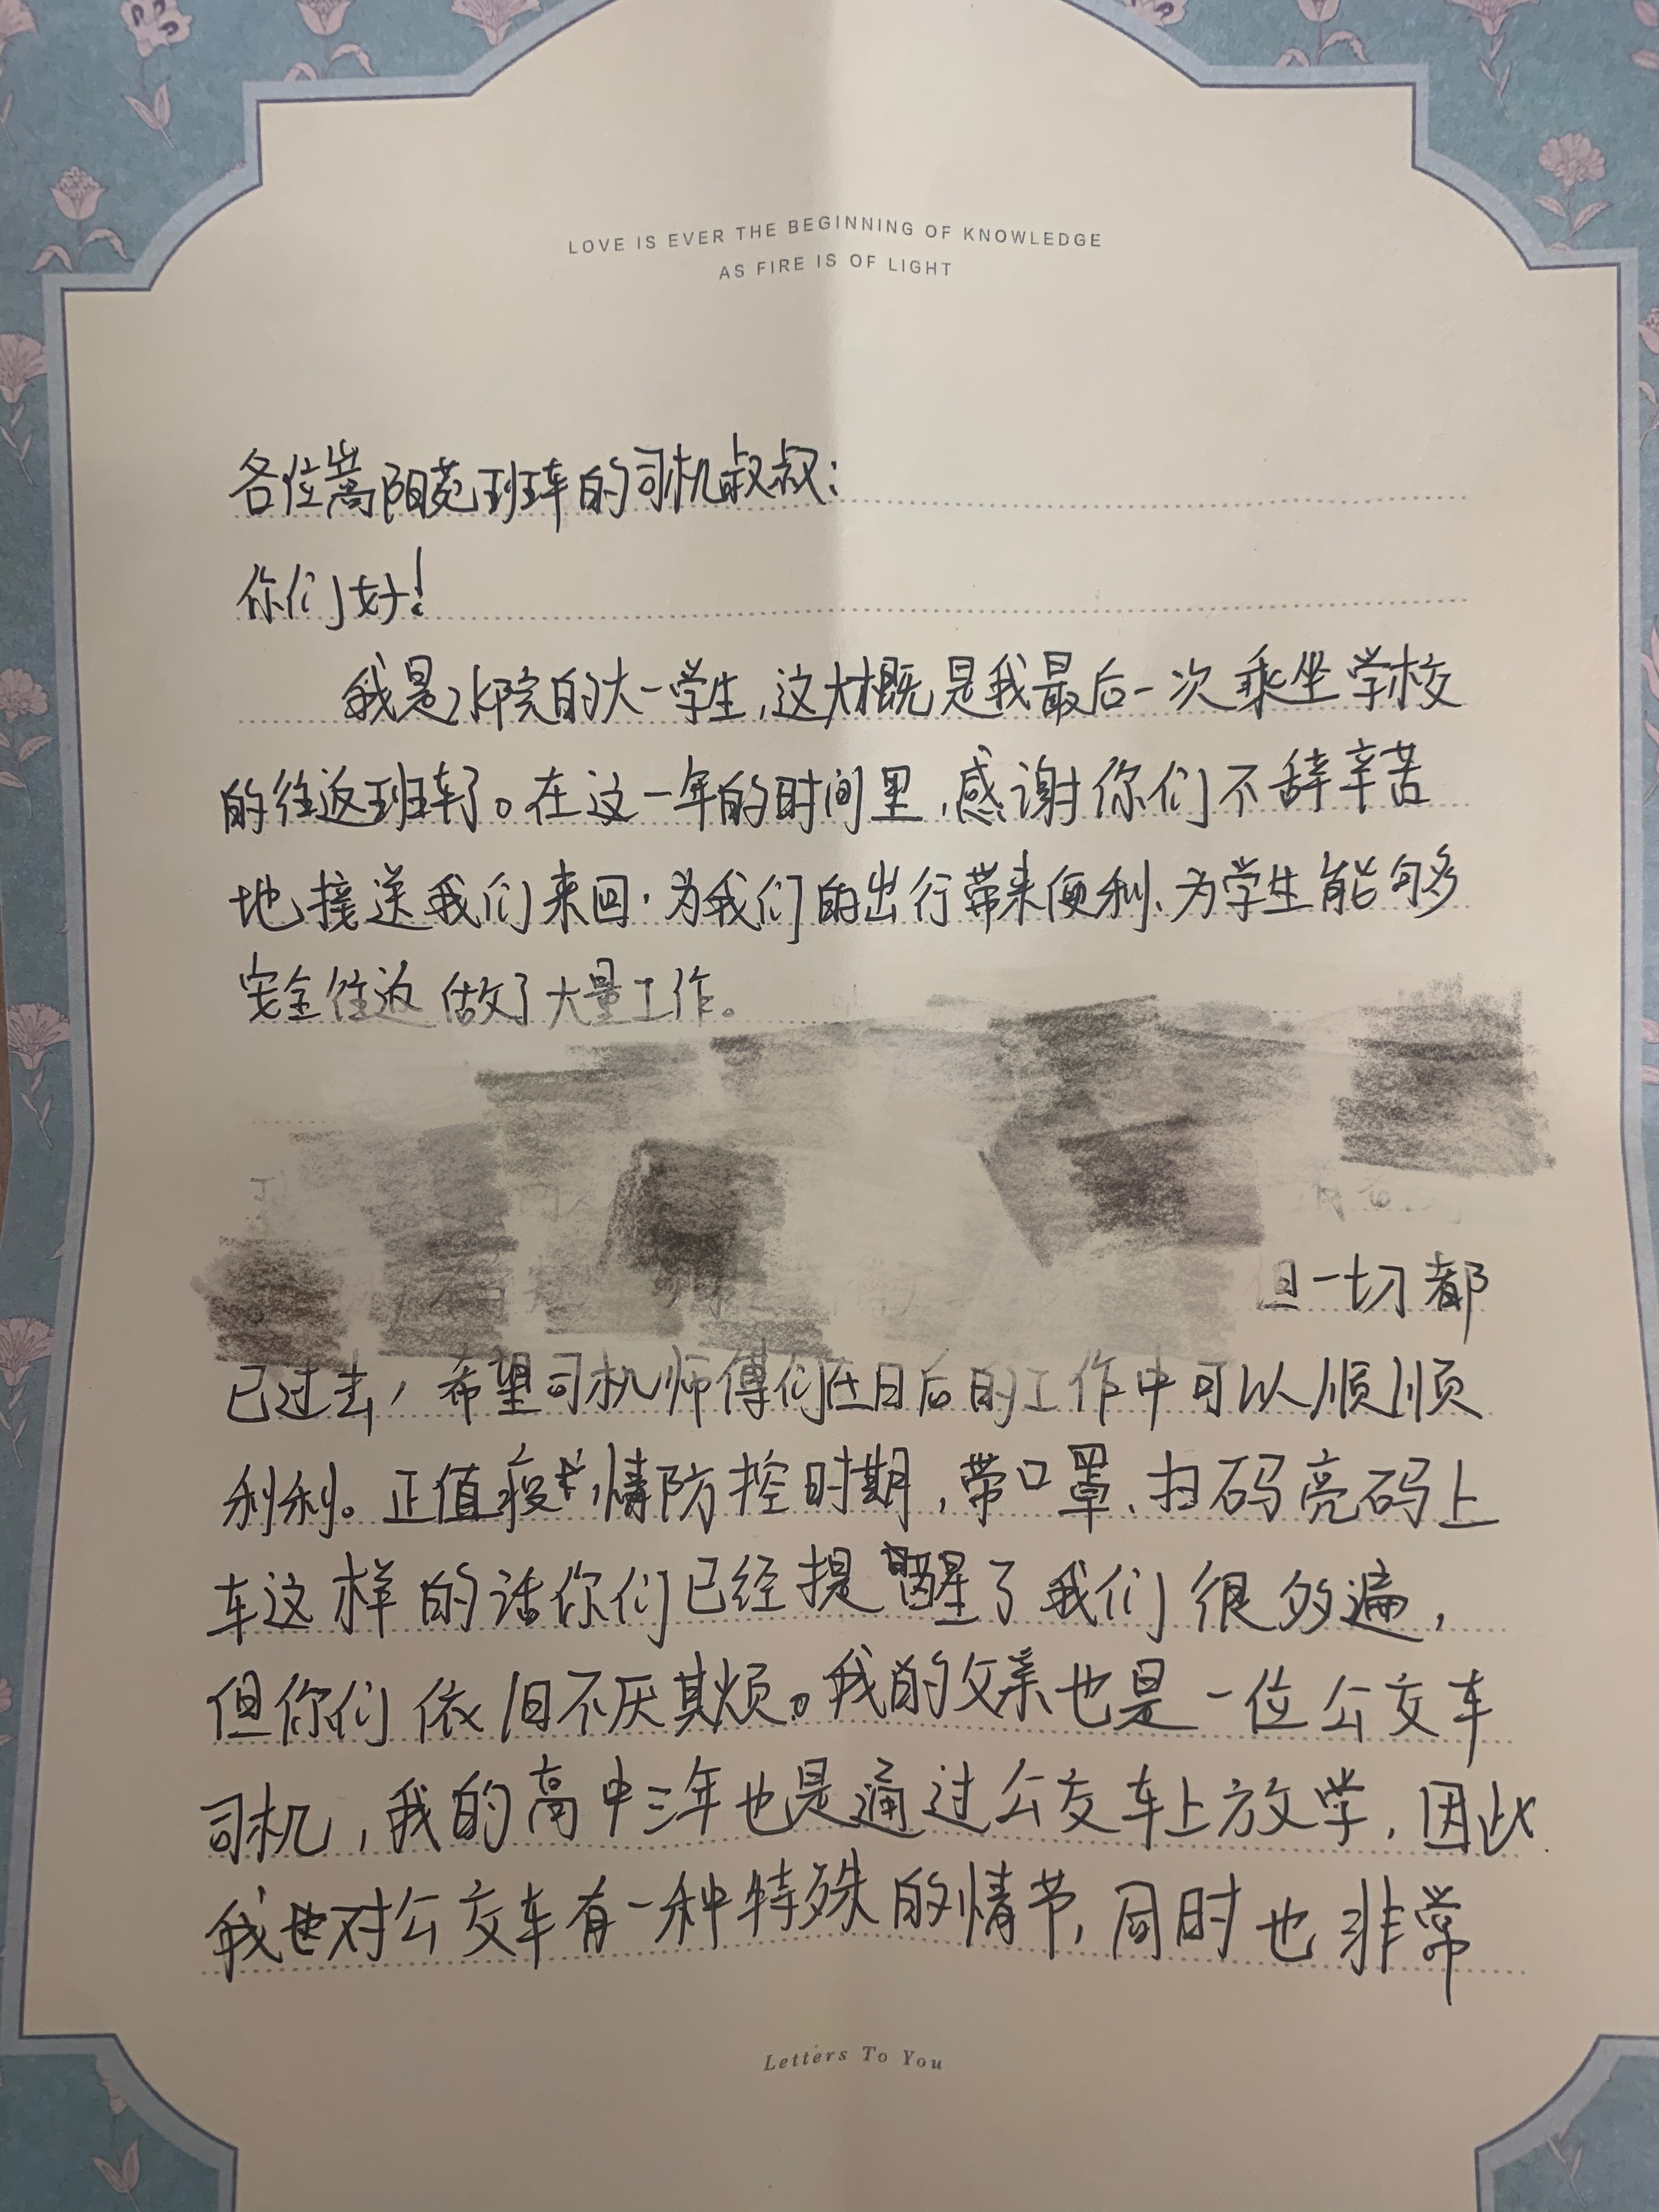 LOVE IS EVER THE BEGINNING OF KNOWLEDGE
AS FIRE IS OF LIGHT
各位嵩阳苑班车的司机叔叔:
你们好!
我是水院的大一学生,这大概是我最后一次乘坐学校
的往返班车了。在这一年的时间里,感谢你们不辞辛苦
地接送我们来回,为我们的出行带来便利、为学生能够
安全往返做了大量工作。
但一切都
已过去,希望司机师傅们在日后的工作中可以顺顺
利利。正值疫情防控时期,带口罩、扫码亮码上
车这样的话你们已经提醒了我们很多遍,
但你们依旧不厌其烦。我的父亲也是一位公交车
司机,我的高中三年也是通过公交车上放学,因此
我也对公交车有一种特殊的情节,同时也非常
Letters To You